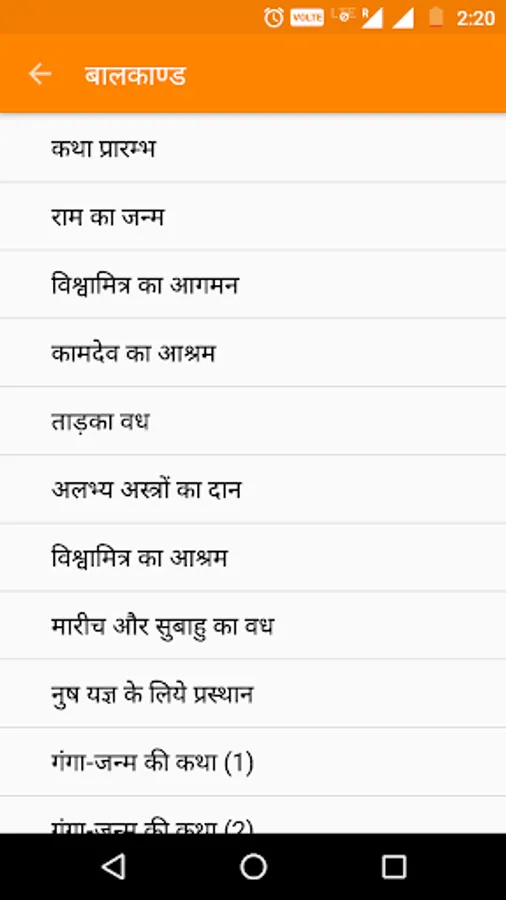 VOLTE R 2:20
बालकाण्ड
कथा प्रारम्भ
राम का जन्म
विश्वामित्र का आगमन
कामदेव का आश्रम
ताड़का वध
अलभ्य अस्त्रों का दान
विश्वामित्र का आश्रम
मारीच और सुबाहु का वध
नुष यज्ञ के लिये प्रस्थान
गंगा-जन्म की कथा (1)
गंगा-जन्म की कथा (2)